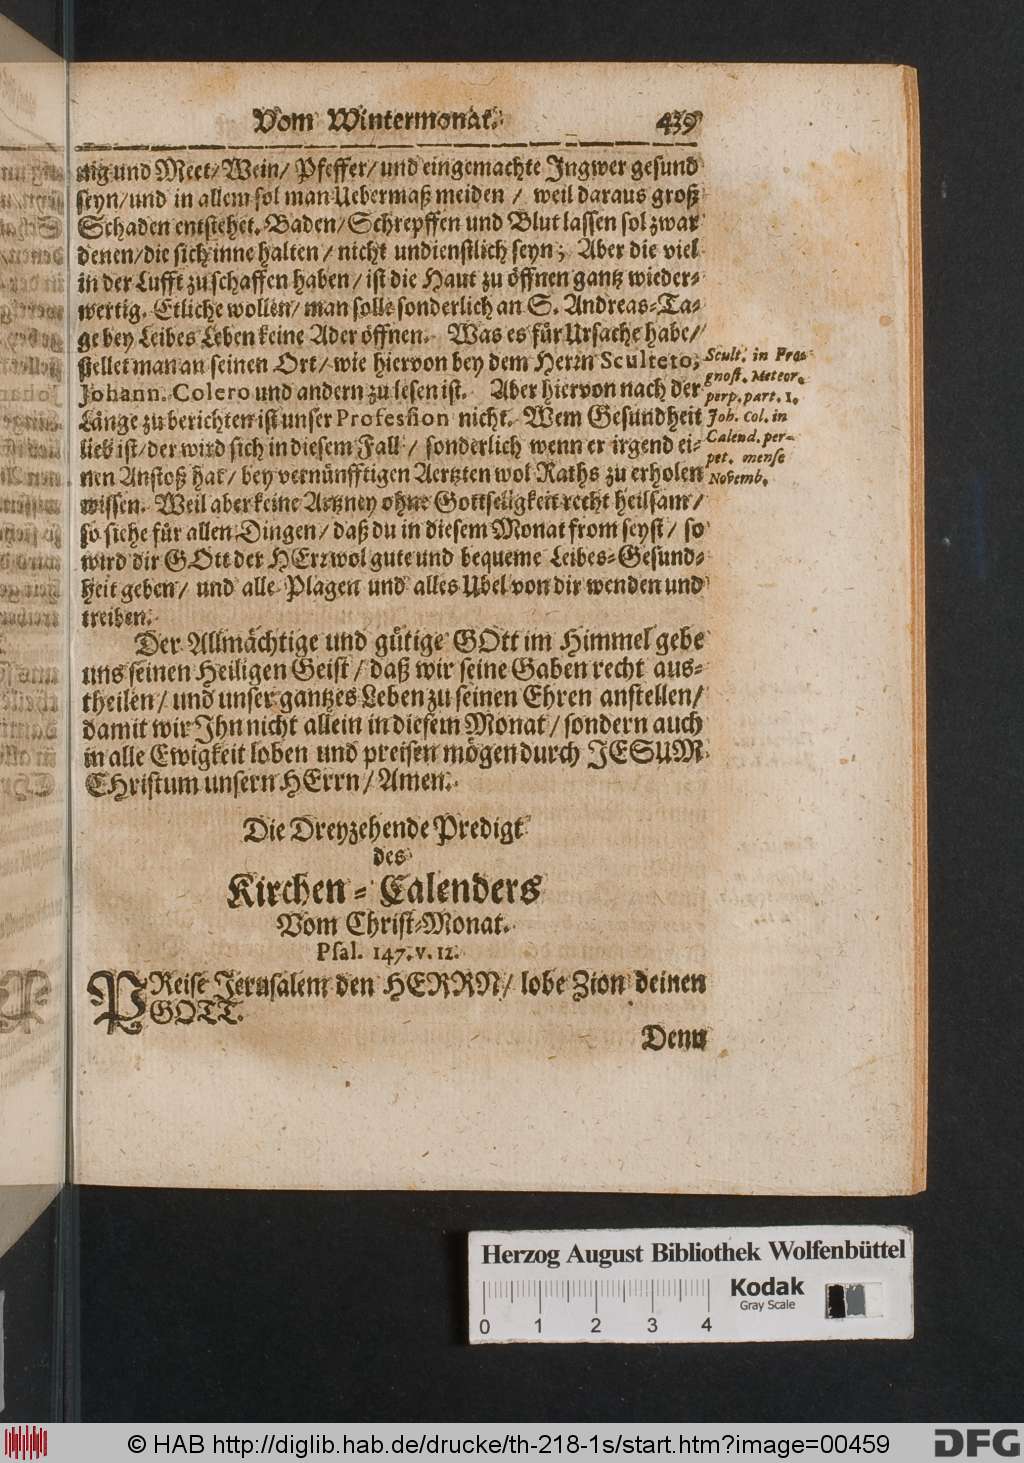 Vom Wintermonat. 439
nig und Meet/ Wein/ Pfeffer/ und eingemachte Ingwer gesund
seyn/ und in allem sol man Uebermaß meiden / weil daraus groß
Schaden entstehet. Baden/ Schrepffen und Blut lassen sol zwar
denen/ die sich inne halten / nicht undienstlich seyn; Aber die viel
in der Lufft zu schaffen haben/ ist die Haut zu öffnen gantz wieder-
wertig. Etliche wollen/ man solle sonderlich an S. Andreas-Ta-
ge bey Leibes Leben keine Ader öffnen. Was es für Ursache habe/
stellet man an seinen Ort/ wie hiervon bey dem Herrn Sculteto,
Johann. Colero und andern zu lesen ist. Aber hiervon nach der
Länge zu berichten ist unser Profession nicht. Wem Gesundheit
lieb ist/ der wird sich in diesem Fall / sonderlich wenn er irgend ei-
nen Anstoß hat/ bey vernünfftigen Aertzten wol Raths zu erholen
wissen. Weil aber keine Artzney ohne Gottseligkeit recht heilsam/
so siehe für allen Dingen/ daß du in diesem Monat from seyst/ so
wird dir GOtt der HErr wol gute und bequeme Leibes-Gesund-
heit geben/ und alle Plagen und alles Ubel von dir wenden und
treiben.
Der Allmächtige und gütige GOtt im Himmel gebe
uns seinen Heiligen Geist / daß wir seine Gaben recht aus-
theilen/ und unser gantzes Leben zu seinen Ehren anstellen/
damit wir Ihn nicht allein in diesem Monat / sondern auch
in alle Ewigkeit loben und preisen mögen durch JESUM
CHristum unsern HErrn/ Amen.
Scult. in Pro-
gnost. Meteor.
perp. part. 1.
Joh. Col. in
Calend. per-
pet. mense
Novemb.
Die Dreyzehende Predigt
des
Kirchen-Calenders
Vom Christ-Monat.
Psal. 147. v. 12.
PReise Jerusalem den HERRN/ lobe Zion deinen
GOTT.
Denn
Herzog August Bibliothek Wolfenbüttel
Kodak
Gray Scale
0 1 2 3 4
© HAB http://diglib.hab.de/drucke/th-218-1s/start.htm?image=00459
DFG